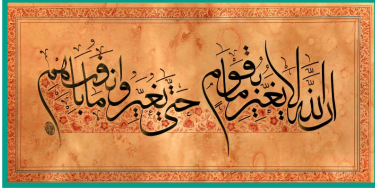 ان الله لا يغير ما بقوم حتى يغيروا ما بانفسهم